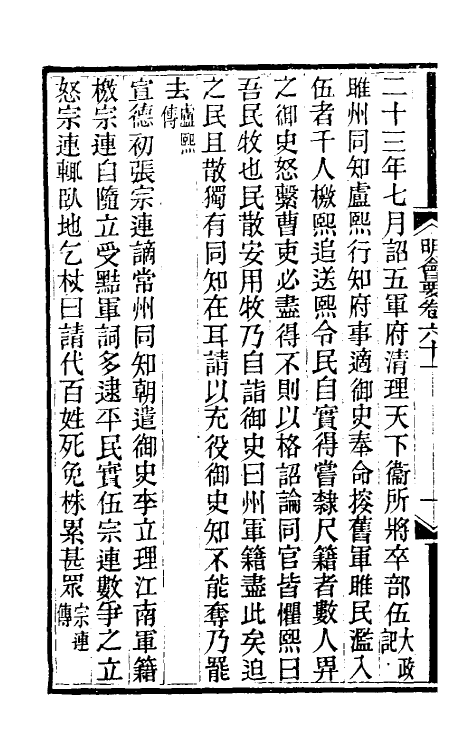 明會要卷六十一
二十三年七月詔五軍府清理天下衞所將卒部伍大政記
睢州同知盧熙行知府事適御史奉命搜舊軍睢民濫入
伍者千人檄熙追送熙令民自實得嘗隸尺籍者數人畀
之御史怒繫曹吏必盡得不則以格詔論同官皆懼熙曰
吾民牧也民散安用牧乃自詣御史曰州軍籍盡此矣迫
之民且散獨有同知在耳請以充役御史知不能奪乃罷
去盧熙傳
宣德初張宗璉謫常州同知朝遣御史李立理江南軍籍
檄宗璉自隨立受黠軍詞多逮平民實伍宗璉數爭之立
怒宗璉輒臥地乞杖曰請代百姓死免株累甚眾宗璉傳